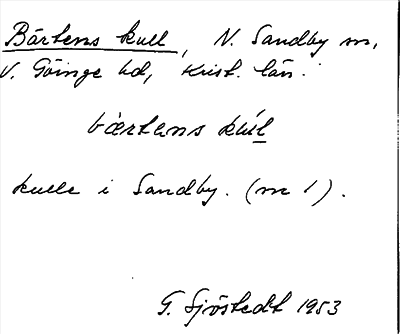 Bärtens kull, N. Sandby sn,
V. Göinge hd, Krist. län.
bàrtens kúl
kulle i Sandby. (m 1).
G. Sjöstedt 1953